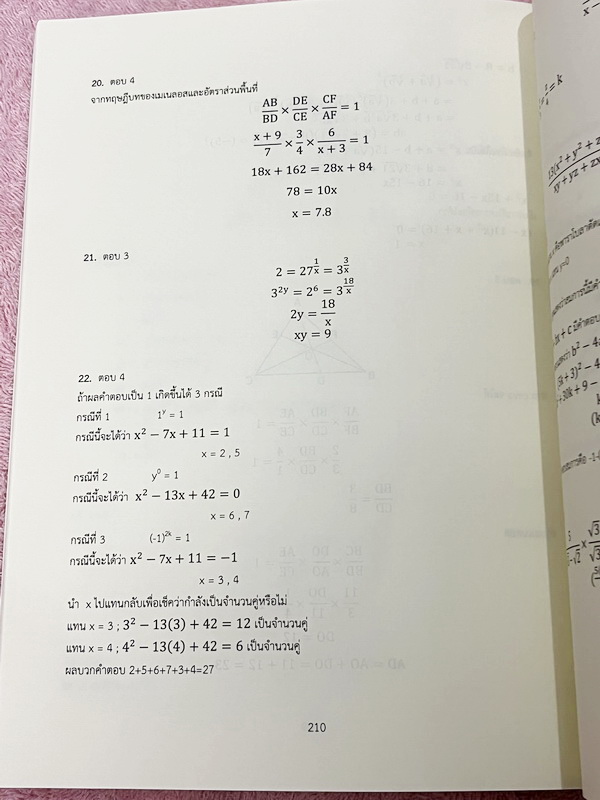 20. ตอบ 4
จากทฤษฎีบทของเมเนลอสและอัตราส่วนพื้นที่
AB/BD × DE/CE × CF/AF = 1
(x + 9)/7 × 3/4 × 6/(x + 3) = 1
18x + 162 = 28x + 84
78 = 10x
x = 7.8
21. ตอบ 3
2 = 27^(1/x) = 3^(3/x)
3^(2y) = 2^6 = 3^(18/x)
2y = 18/x
xy = 9
22. ตอบ 4
ถ้าผลคำตอบเป็น 1 เกิดขึ้นได้ 3 กรณี
กรณีที่ 1 1^y = 1
กรณีนี้จะได้ว่า x² − 7x + 11 = 1
x = 2 , 5
กรณีที่ 2 y⁰ = 1
กรณีนี้จะได้ว่า x² − 13x + 42 = 0
x = 6 , 7
กรณีที่ 3 (-1)^(2k) = 1
กรณีนี้จะได้ว่า x² − 7x + 11 = −1
x = 3 , 4
นำ x ไปแทนกลับเพื่อเช็คว่ากำลังเป็นจำนวนคู่หรือไม่
แทน x = 3 ; 3² − 13(3) + 42 = 12 เป็นจำนวนคู่
แทน x = 4 ; 4² − 13(4) + 42 = 6 เป็นจำนวนคู่
ผลบวกคำตอบ 2+5+6+7+3+4=27
210